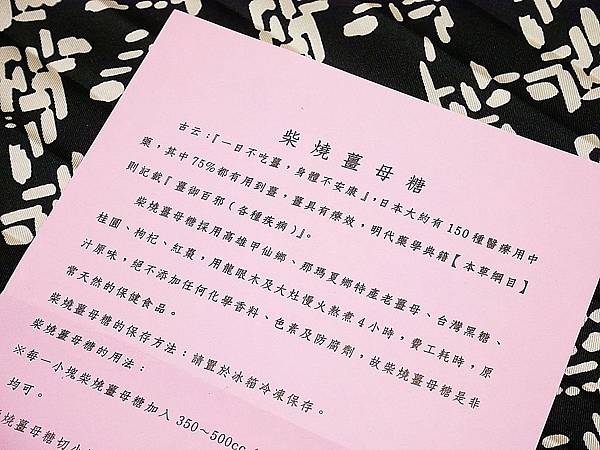 柴燒薑母糖
古云：『一日不吃薑，身體不安康』，日本大約有150種醫療用中
藥，其中75%都有用到薑，薑具有療效，明代藥學典籍【本草綱目】
則記載『薑御百邪（各種疾病）』。
柴燒薑母糖採用高雄甲仙鄉、那瑪夏鄉特產老薑母、台灣黑糖、
桂圓、枸杞、紅棗，用龍眼木及大灶慢火熬煮4小時，費工耗時，原
汁原味，絕不添加任何化學香料、色素及防腐劑，故柴燒薑母糖是非
常天然的保健食品。
柴燒薑母糖的保存方法：請置於冰箱冷凍保存。
柴燒薑母糖的用法：
※每一小塊柴燒薑母糖加入350～500cc
均可。
燒薑母糖切小